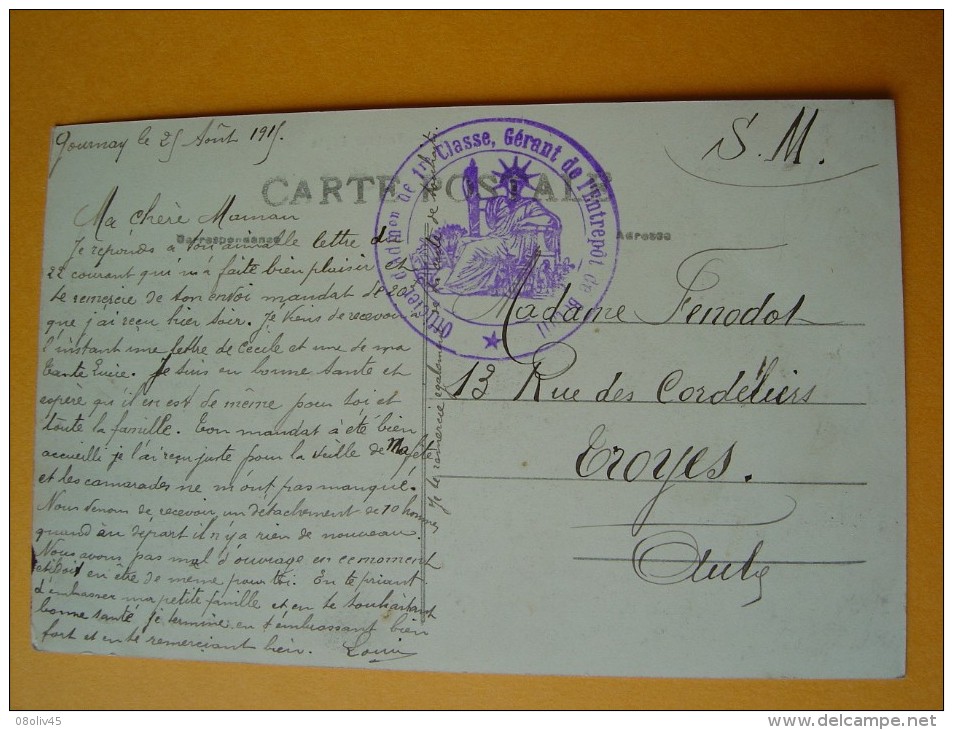 Gournay le 25 Août 1915.
S. M.
CARTE POSTALE
Correspondance
Adresse
Officier d'Admon de 1re Classe, Gérant de l'Entrepôt de
Ma chère Maman
Je réponds à ton aimable lettre du
22 courant qui m'a faite bien plaisir et
te remercie de ton envoi mandat de 20f
que j'ai reçu hier soir. Je viens de recevoir à
l'instant une lettre de Cécile et une de ma
tante Luire. Je suis en bonne santé et
espère qu'il en est de même pour toi et
toute la famille. Ton mandat à été bien
accueilli je l'ai reçu juste pour la veille de Ma fête
et les camarades ne m'ont pas manqué.
Nous venons de recevoir un détachement de 70 hommes
quand au départ il n'y a rien de nouveau.
Nous avons pas mal d'ouvrage en ce moment
et doit en être de même pour toi. En te priant
d'embrasser ma petite famille et en te souhaitant
bonne santé je termine en t'embrassant bien
fort et en te remerciant bien. Louis
Je te remercie également de la
Madame Fenodot
13 Rue des Cordeliers
Troyes.
Aube
08oliv45
www.delcampe.net